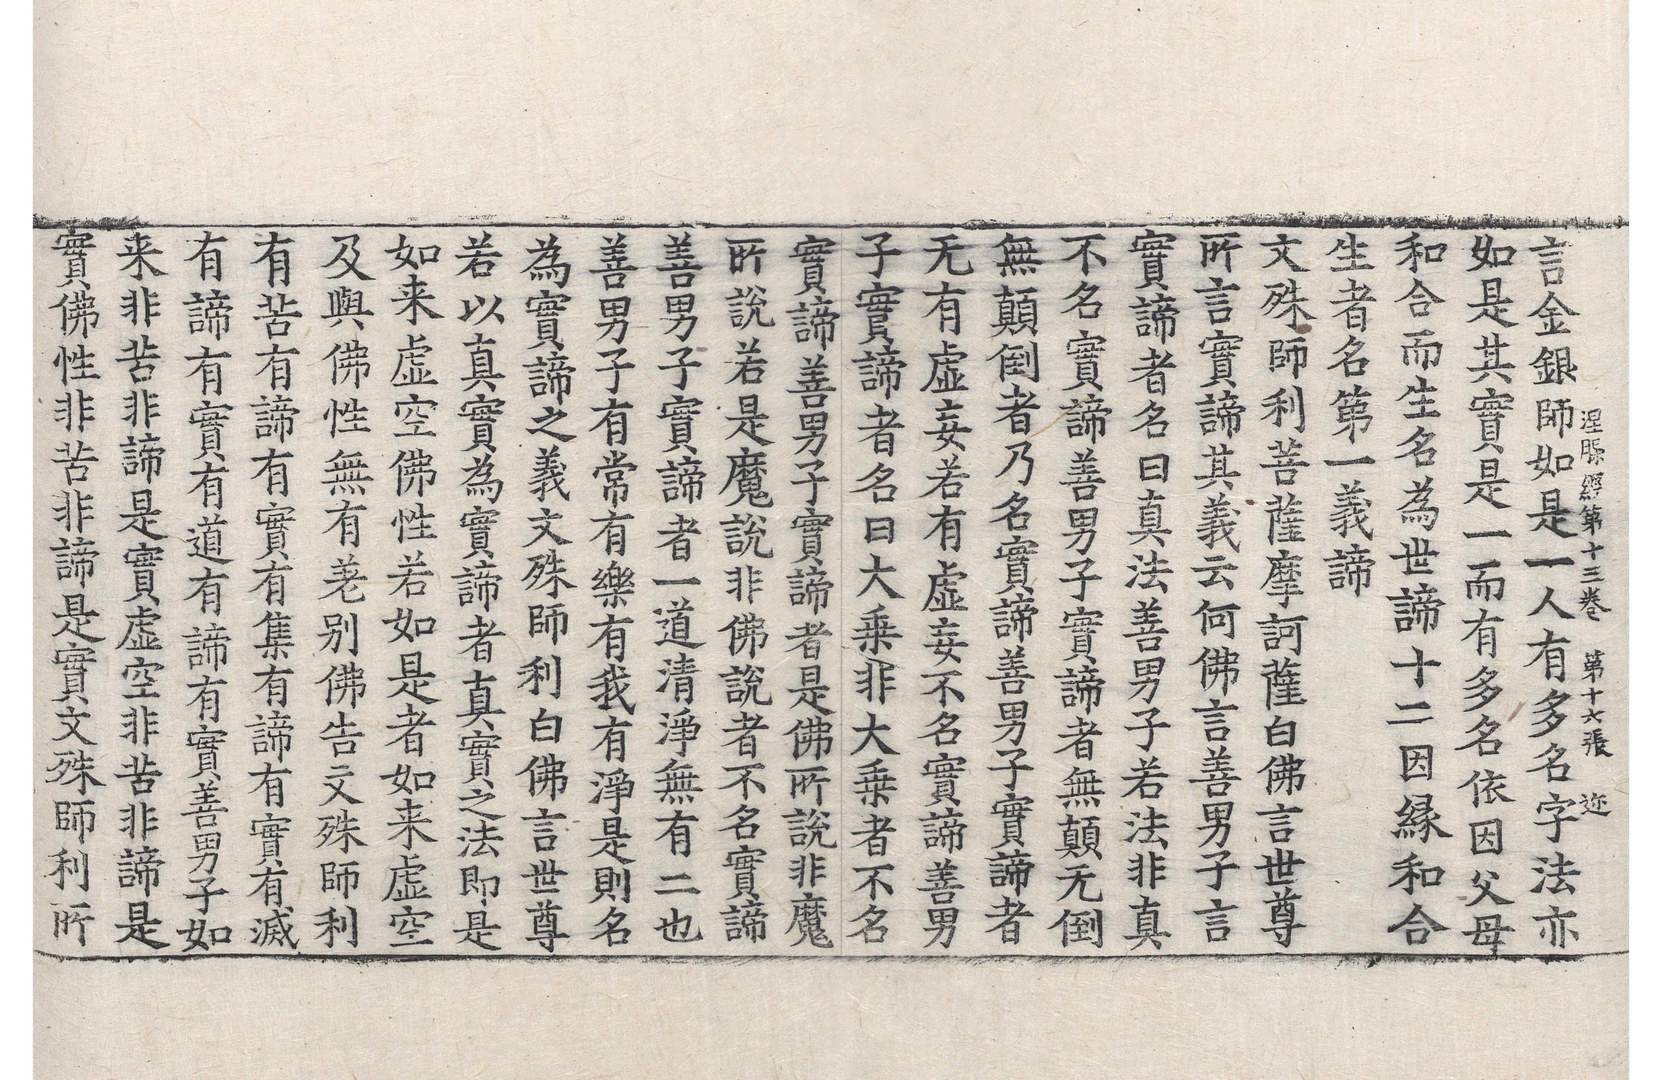 涅槃經第十三卷 第十六張 迩
言金銀師如是一人有多名字法亦
如是其實是一而有多名依因父母
和合而生名為世諦十二因縁和合
生者名第一義諦
文殊師利菩薩摩訶薩白佛言世尊
所言實諦其義云何佛言善男子言
實諦者名曰真法善男子若法非真
不名實諦善男子實諦者無顛无倒
無顛倒者乃名實諦善男子實諦者
无有虛妄若有虛妄不名實諦善男
子實諦者名曰大乗非大乗者不名
實諦善男子實諦者是佛所說非魔
所說若是魔說非佛說者不名實諦
善男子實諦者一道清淨無有二也
善男子有常有樂有我有淨是則名
為實諦之義文殊師利白佛言世尊
若以真實為實諦者真實之法即是
如来虛空佛性若如是者如来虛空
及與佛性無有差别佛告文殊師利
有苦有諦有實有集有諦有實有滅
有諦有實有道有諦有實善男子如
来非苦非諦是實虛空非苦非諦是
實佛性非苦非諦是實文殊師利所